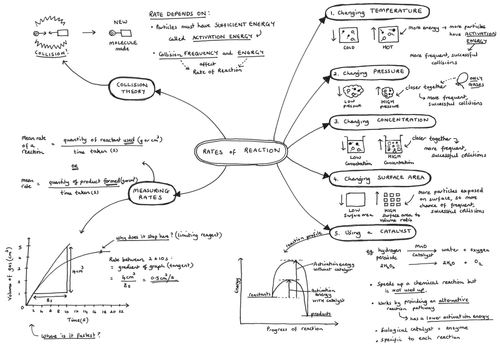 RATES of REACTION
COLLISION
THEORY
COLLISION!
NEW
MOLECULE
made
RATE DEPENDS ON:
• Particles must have SUFFICIENT ENERGY
called ACTIVATION ENERGY
• Collision FREQUENCY and ENERGY
affect
Rate of Reaction
1. Changing TEMPERATURE
COLD
HOT
more energy → more particles
have ACTIVATION
ENERGY
more frequent, successful
collisions
2. Changing PRESSURE
LOW
PRESSURE
HIGH
PRESSURE
closer together
ONLY
GASES
more frequent,
successful collisions
3. Changing CONCENTRATION
LOW
Concentration
HIGH
Concentration
closer together
more frequent,
successful collisions
4. Changing SURFACE AREA
LOW
Surface area
HIGH
Surface area to
Volume ratio
More particles exposed
on surface, so more
chance of frequent,
successful collisions
5. Using a CATALYST
reaction profile
eg hydrogen
peroxide
MnO
Catalyst
water + oxygen
2H₂O₂
2H₂O + O₂
• Speeds up a chemical reaction but
is not used up
• Works by providing an alternative
reaction pathway
↳ has a lower activation energy
• biological catalyst = enzyme
• specific to each reaction
Energy
Activation energy
without catalyst
Activation
energy
with catalyst
reactants
products
Progress of reaction
MEASURING
RATES
Mean rate
of a
reaction
= quantity of reactant used (g or cm³)
time taken (s)
OR
mean
rate
= quantity of product formed (g or cm³)
time taken (s)
Why does it stop here? (limiting reagent)
Rate between 2 & 10s:
= gradient of graph (tangent)
= 4cm³
8s
= 0.5cm³/s
Volume of gas (cm³)
5
4
3
2
1
0
2 4 6 8 10 12 14 16 18 20 22
Time(s)
4cm³
8s
Where is it fastest?